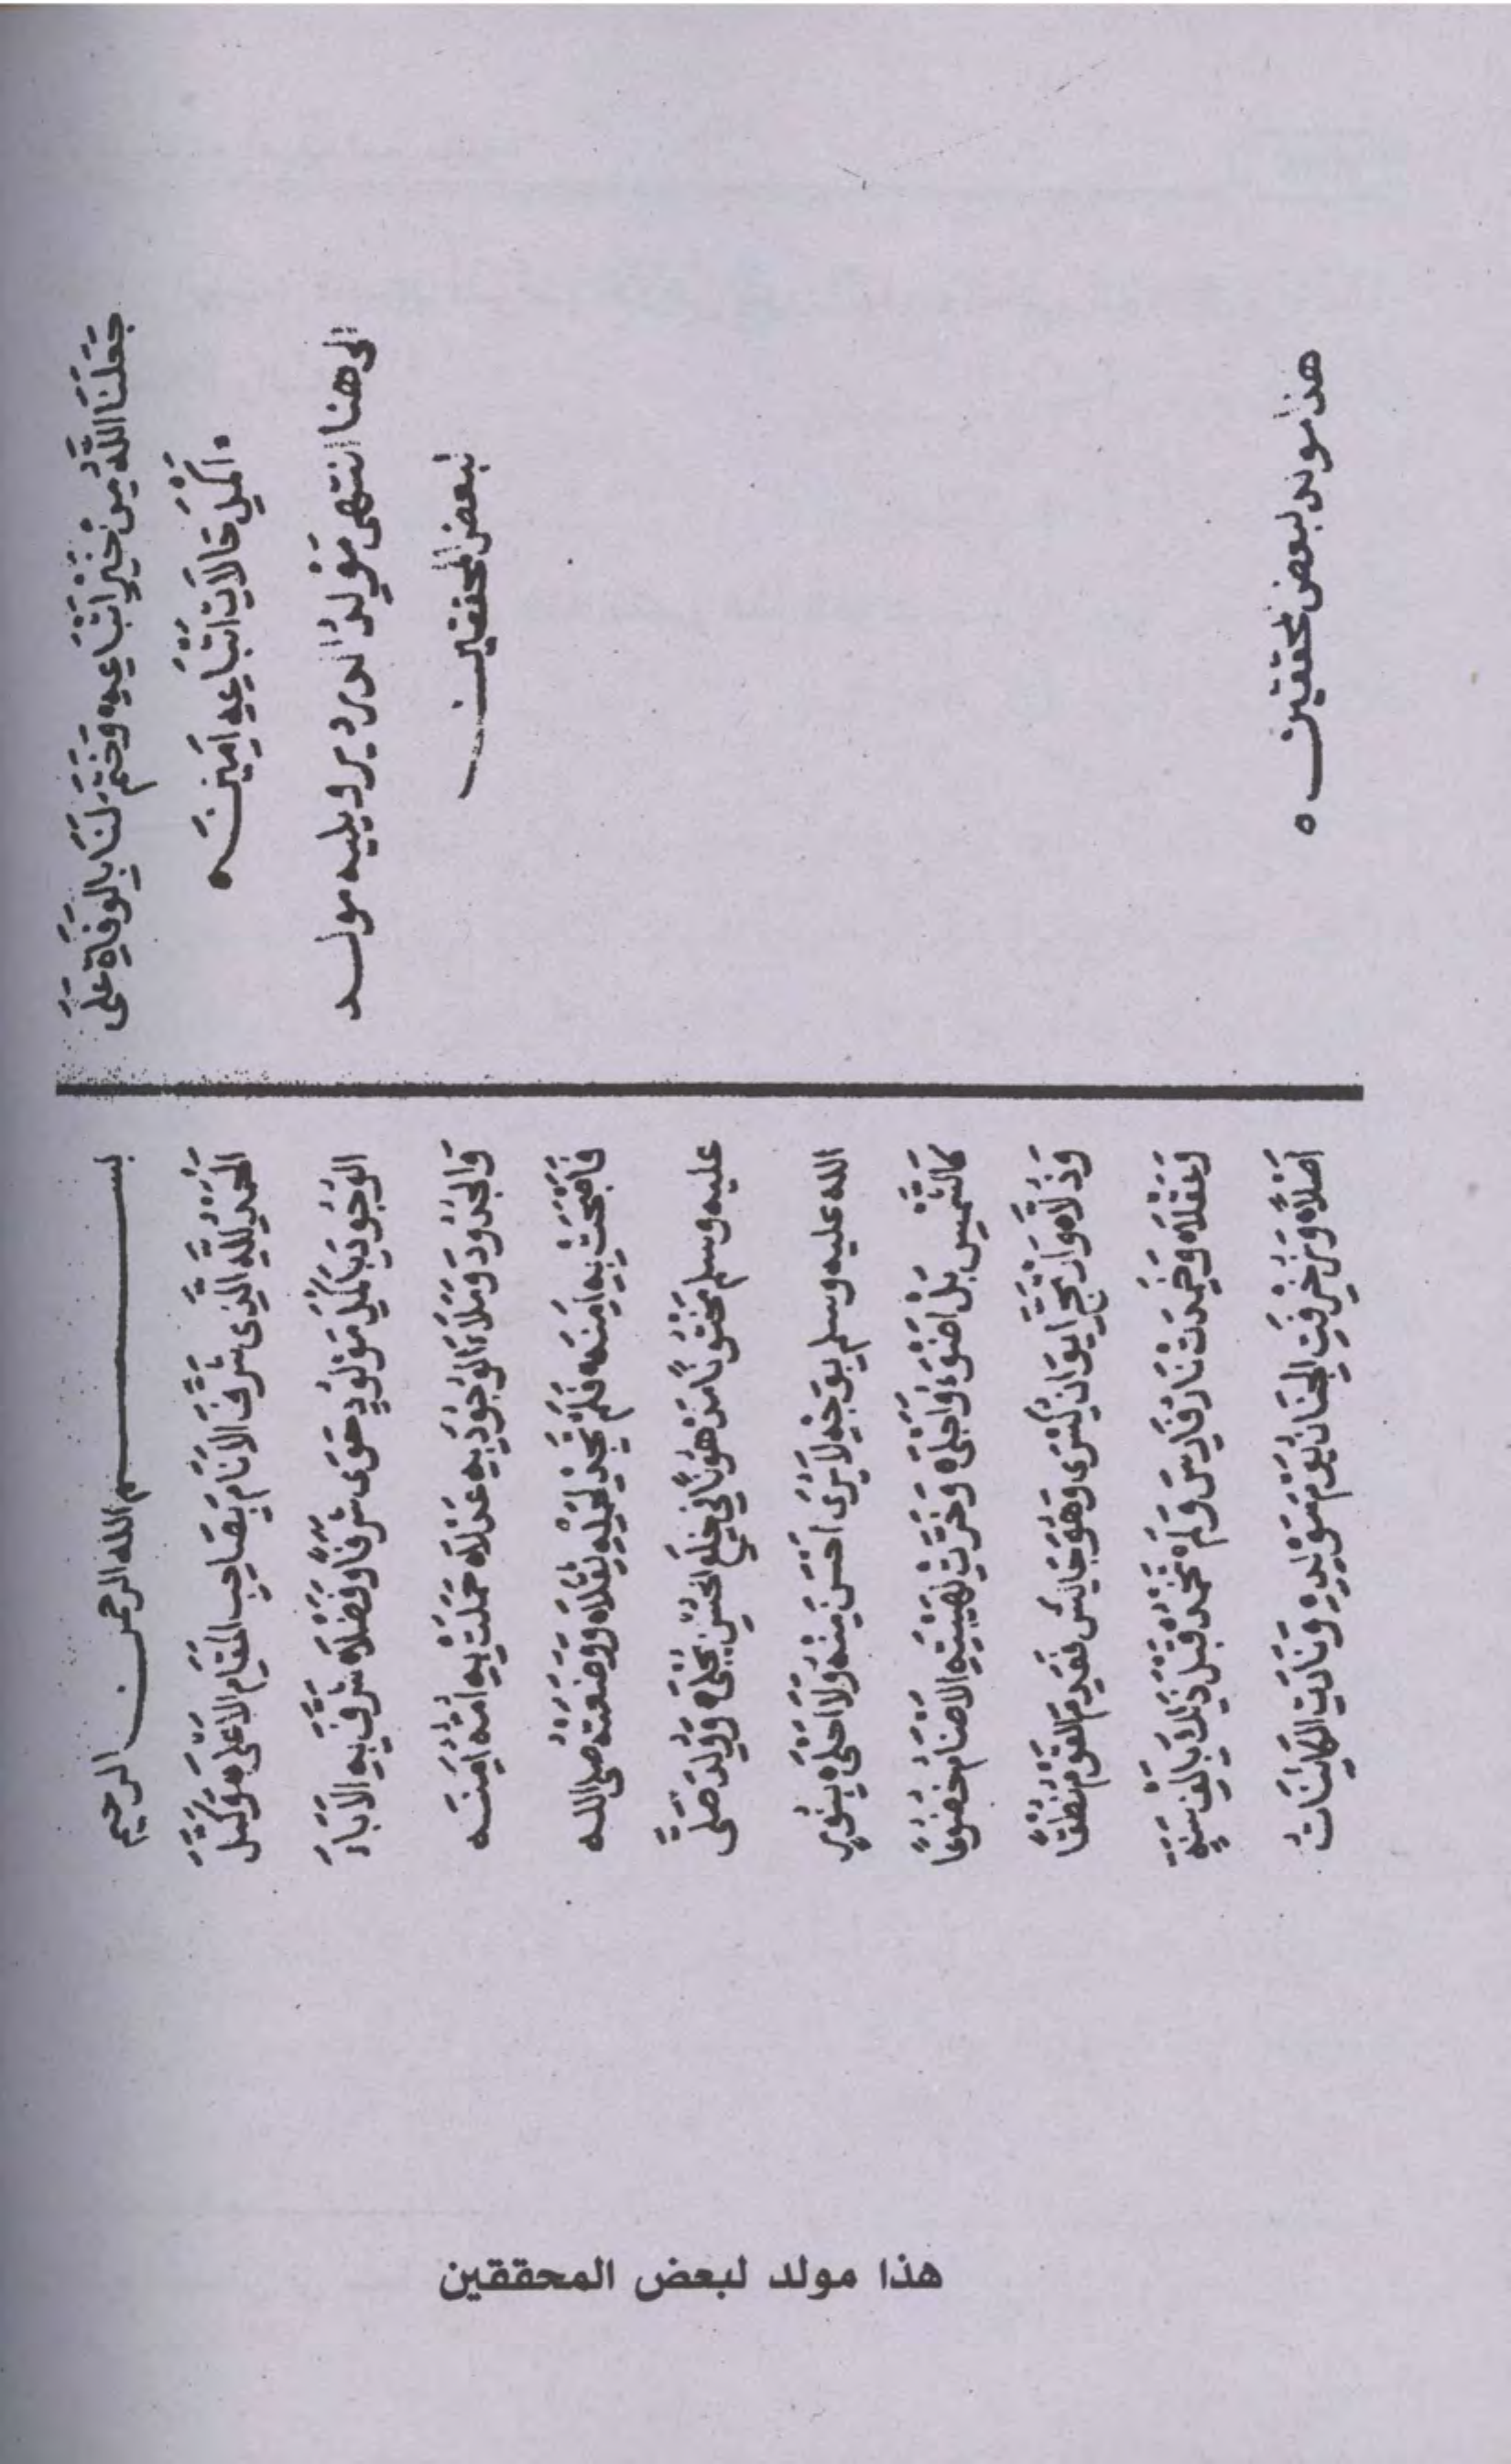 جَعَلَنَا اللَّهُ مِنْ خَيْرِ اتْبَاعِهِ وَخَتَمَ لَنَا بِالْوَفَاةِ عَلَى
اَكْمَلِ حَالَاتِ اتْبَاعِهِ اَمِينَ
الى هنا انتهى مَوْلِدُ الدردير ويليه مولد
لبعض المحققين
هذا مولد لبعض المحققين
بسم الله الرحمن الرحيم
اَلْحَمْدُ لِلَّهِ الَّذِى شَرَّفَ الْاَنَامَ بِصَاحِبِ الْمَقَامِ الْاَعْلَى وَكَمَّلَ
الْوُجُودَ بِاَكْمَلِ مَوْلُودٍ حَوَى شَرَفًا وَفَضْلَا شَرَّفَ بِهِ الْاَبَاءَ
وَالْجُدُودَ وَمَلَاءَ الْوُجُودَ بِهِ عَدْلَا حَمَلَتْ بِهِ اُمُّهُ اٰمِنَه
فَاَصْبَحَتْ بِهِ اٰمِنَه فَلَمْ تَجِدْ لِحَمْلِهِ ثِقْلَا وَوَضَعَتْهُ صلى الله
عليه وسلم مَخْتُونًا مَدْهُونًا فِي خِلَعِ الْحُسْنِ يُجْلَى وَوُلِدَ صَلَّى
الله عليه وسلم بِوَجْهٍ لَا يُرَى اَحْسَنَ مِنْهُ وَلَا اَحْلَى بِنُورٍ
كَالشَّمْسِ بَلْ اَضْوَءُ وَاَجْلَى وَخَرَّتْ لِهَيْبَتِهِ الْاَصْنَامُ خُضُوعًا
وَذُلَّا وَارْتَجَّ اِيوَانُ كِسْرَى وَهُوَ جَالِسٌ فَعَدِمَ الْقَوْمُ نُطْقًا
وَعَقْلَا وَخَمِدَتْ نَارُ فَارِسَ وَلَمْ تَخْمُدْ قَبْلَ ذٰلِكَ بِاَلْفِ سَنَةٍ
اَصْلًا وَزُخْرِفَتِ الْجِنَانُ يَوْمَ مَوْلِدِهِ وَنَادَتِ الْكَائِنَاتُ
هذا مولد لبعض المحققين